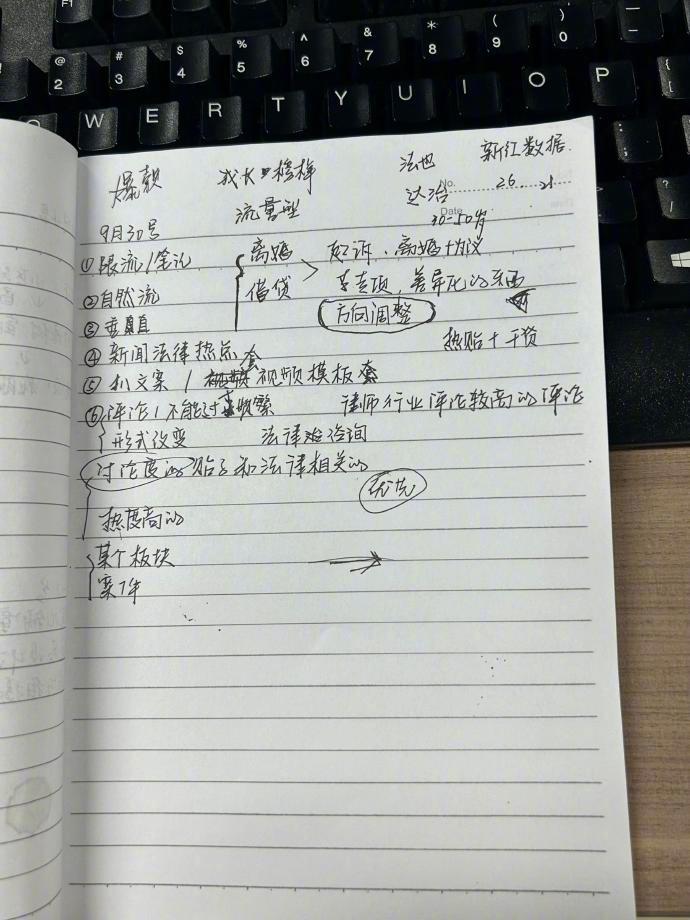 F1
! @ 2 # 3 $ 4 % 5 ^ 6 & 7 * 8 ( 9 ) 0
Q W E R T Y U I O P
爆款 成长 榜样 法 新红数据
流量型 达治 No. 26. 21
9月30号 Date 30-50岁
①跟流/笔记 离婚 起诉、离婚协议
②自然流 借贷 专项,差异化的东西
③垂直 方向调整
④新闻法律热点套 热贴+干货
⑤利文案/视频模板套
⑥评论/不能过于频繁 律师行业评论较高的评论
形式改变 法律咨询
讨论度的贴子和法律相关的
优先
热度高的
某个板块
案件